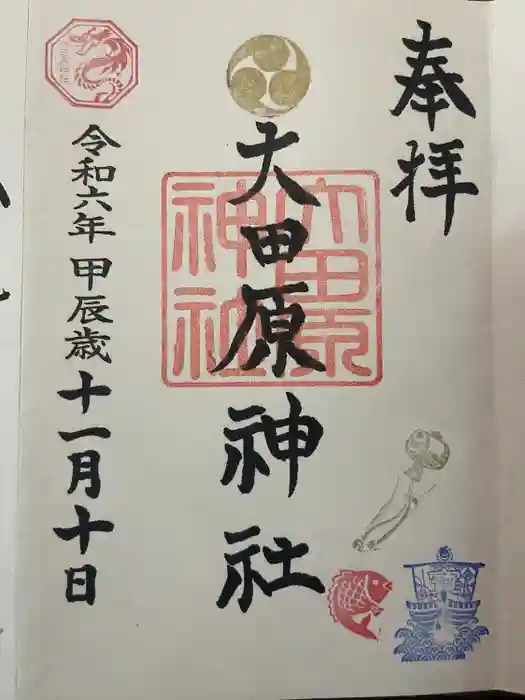 奉拝
大田原神社
大田原
神社
令和六年 甲辰歳 十一月十日